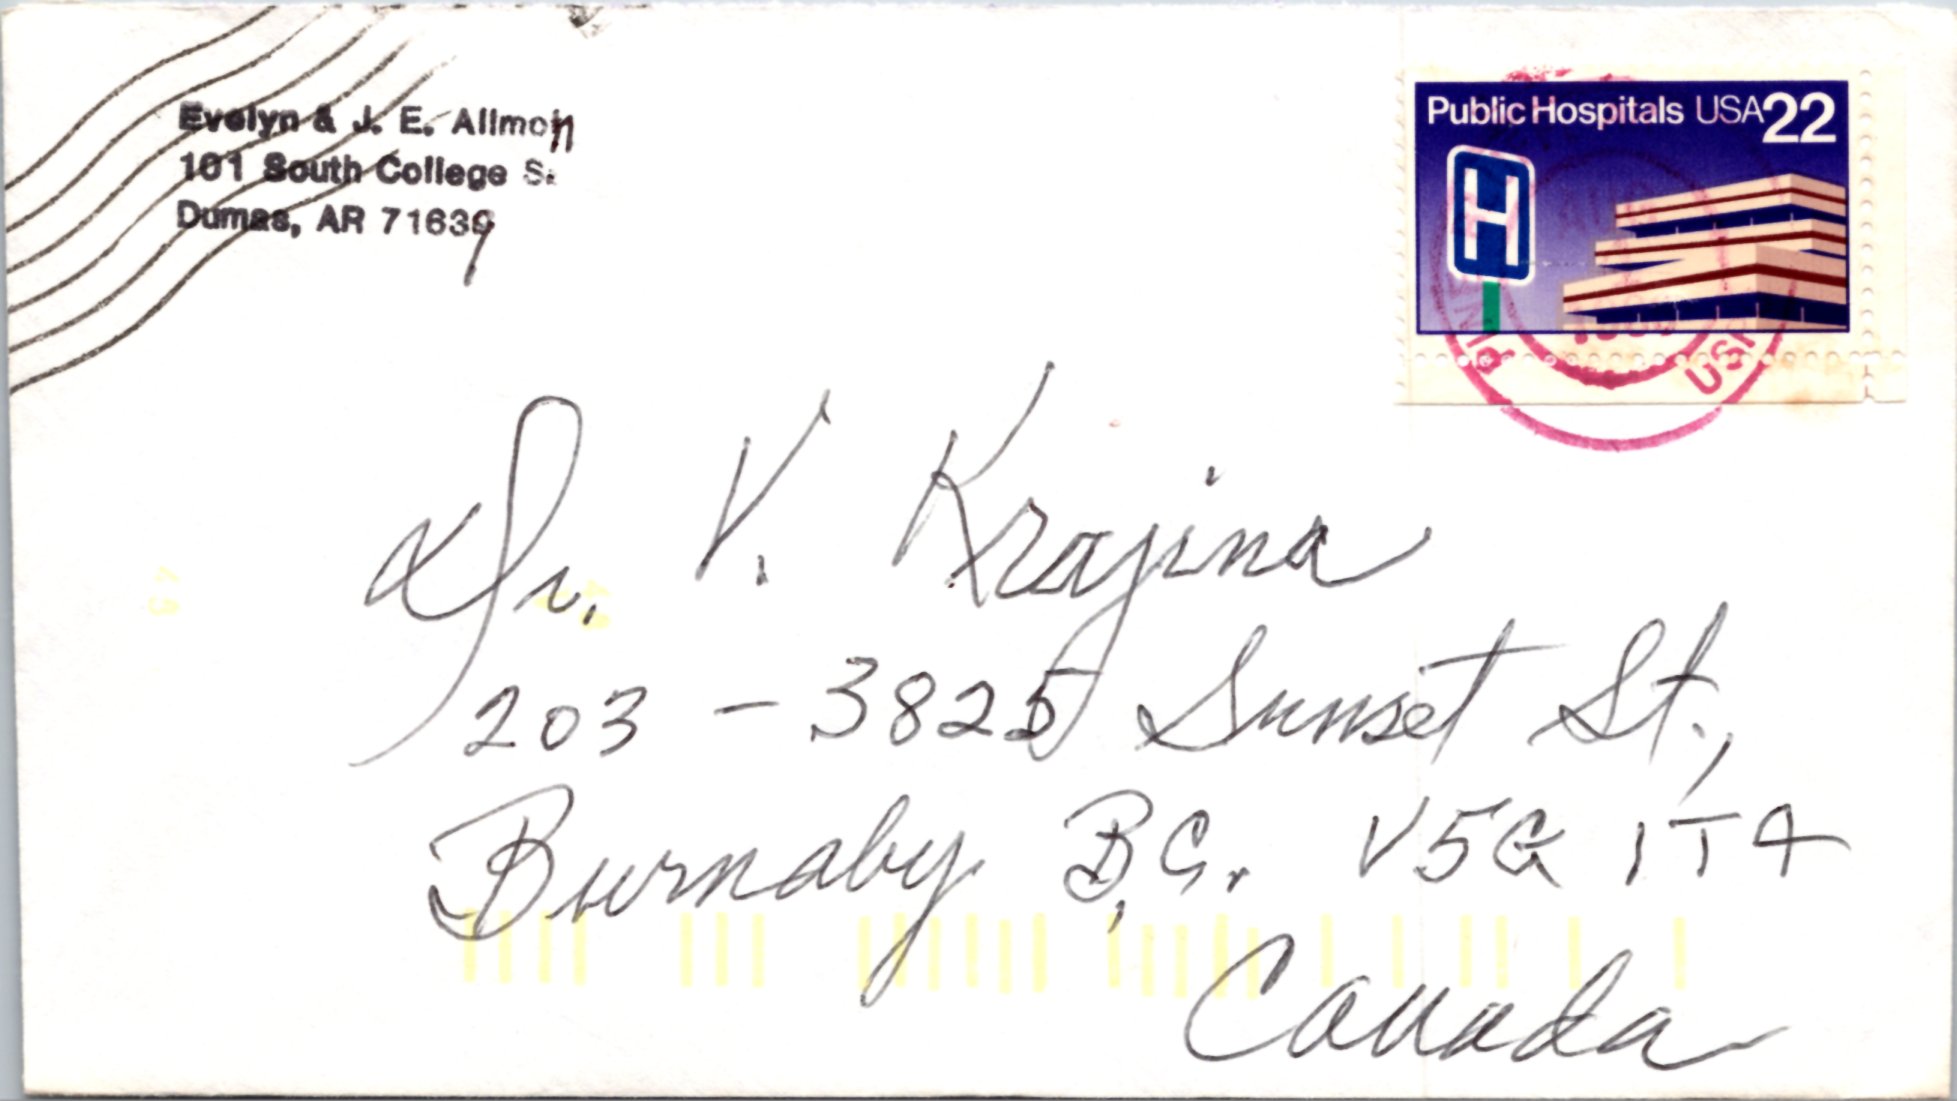 Evelyn & J. E. Allmon
101 South College S.
Dumas, AR 71639
Public Hospitals USA 22
H
USP
Dr. V. Krajina
203 - 3825 Sunset St.,
Burnaby B.C. V5G 1T4
Canada